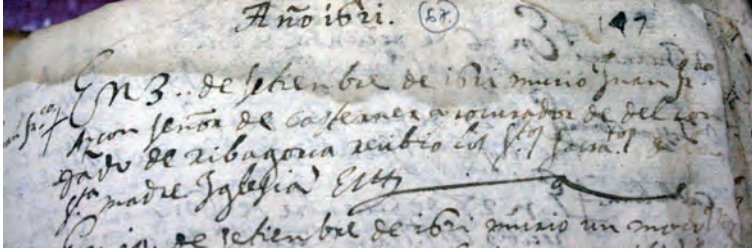 Año 1621. 67. 147
En 3.. de setienbre de 1621 murio Juan fr.co
Azcon señor de casterner procurador de del con
dado de ribagorça recibio los s.tos sacra.tos de
s.ta madre Iglesia
de setienbre de 1621 murio un